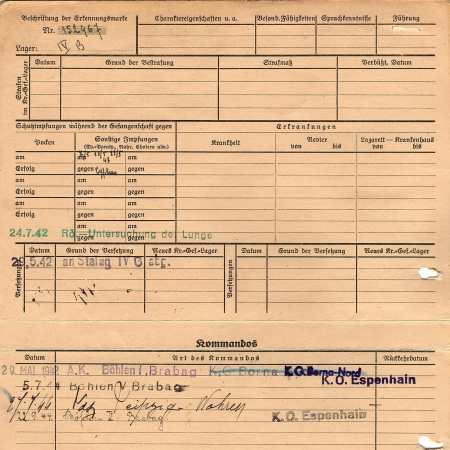 Beschriftung der Erkennungsmarke Charaktereigenschaften u. a. Besond. Fähigkeiten Sprachkenntnisse Führung
Nr. 152967
Lager: IV B
Datum Grund der Bestrafung Strafmaß Verbüßt, Datum
Strafen im Kr.-Gef.-Lager
Schutzimpfungen während der Gefangenschaft gegen Erkrankungen
Pocken Sonstige Impfungen Krankheit Revier Lazarett — Krankenhaus
von bis von bis
am am am
Erfolg gegen gegen
am am am
Erfolg gegen gegen
am am am
Erfolg gegen gegen
24.7.42 Rö.-Untersuchung der Lunge
Versetzungen Datum Grund der Versetzung Neues Kr.-Gef.-Lager Versetzungen Datum Grund der Versetzung Neues Kr.-Gef.-Lager
5.42 an Stalag IV abg.
Kommandos
Datum Art des Kommandos Rückkehrdatum
29. MAI 1942 A.K. Böhlen I, Brabag K.O Borna K.O. Borna-Nord
K.O. Espenhain
5.7. Böhlen V Brabag
Leipzig Wahren
22.9.44 Brabag K.O. Espenhain